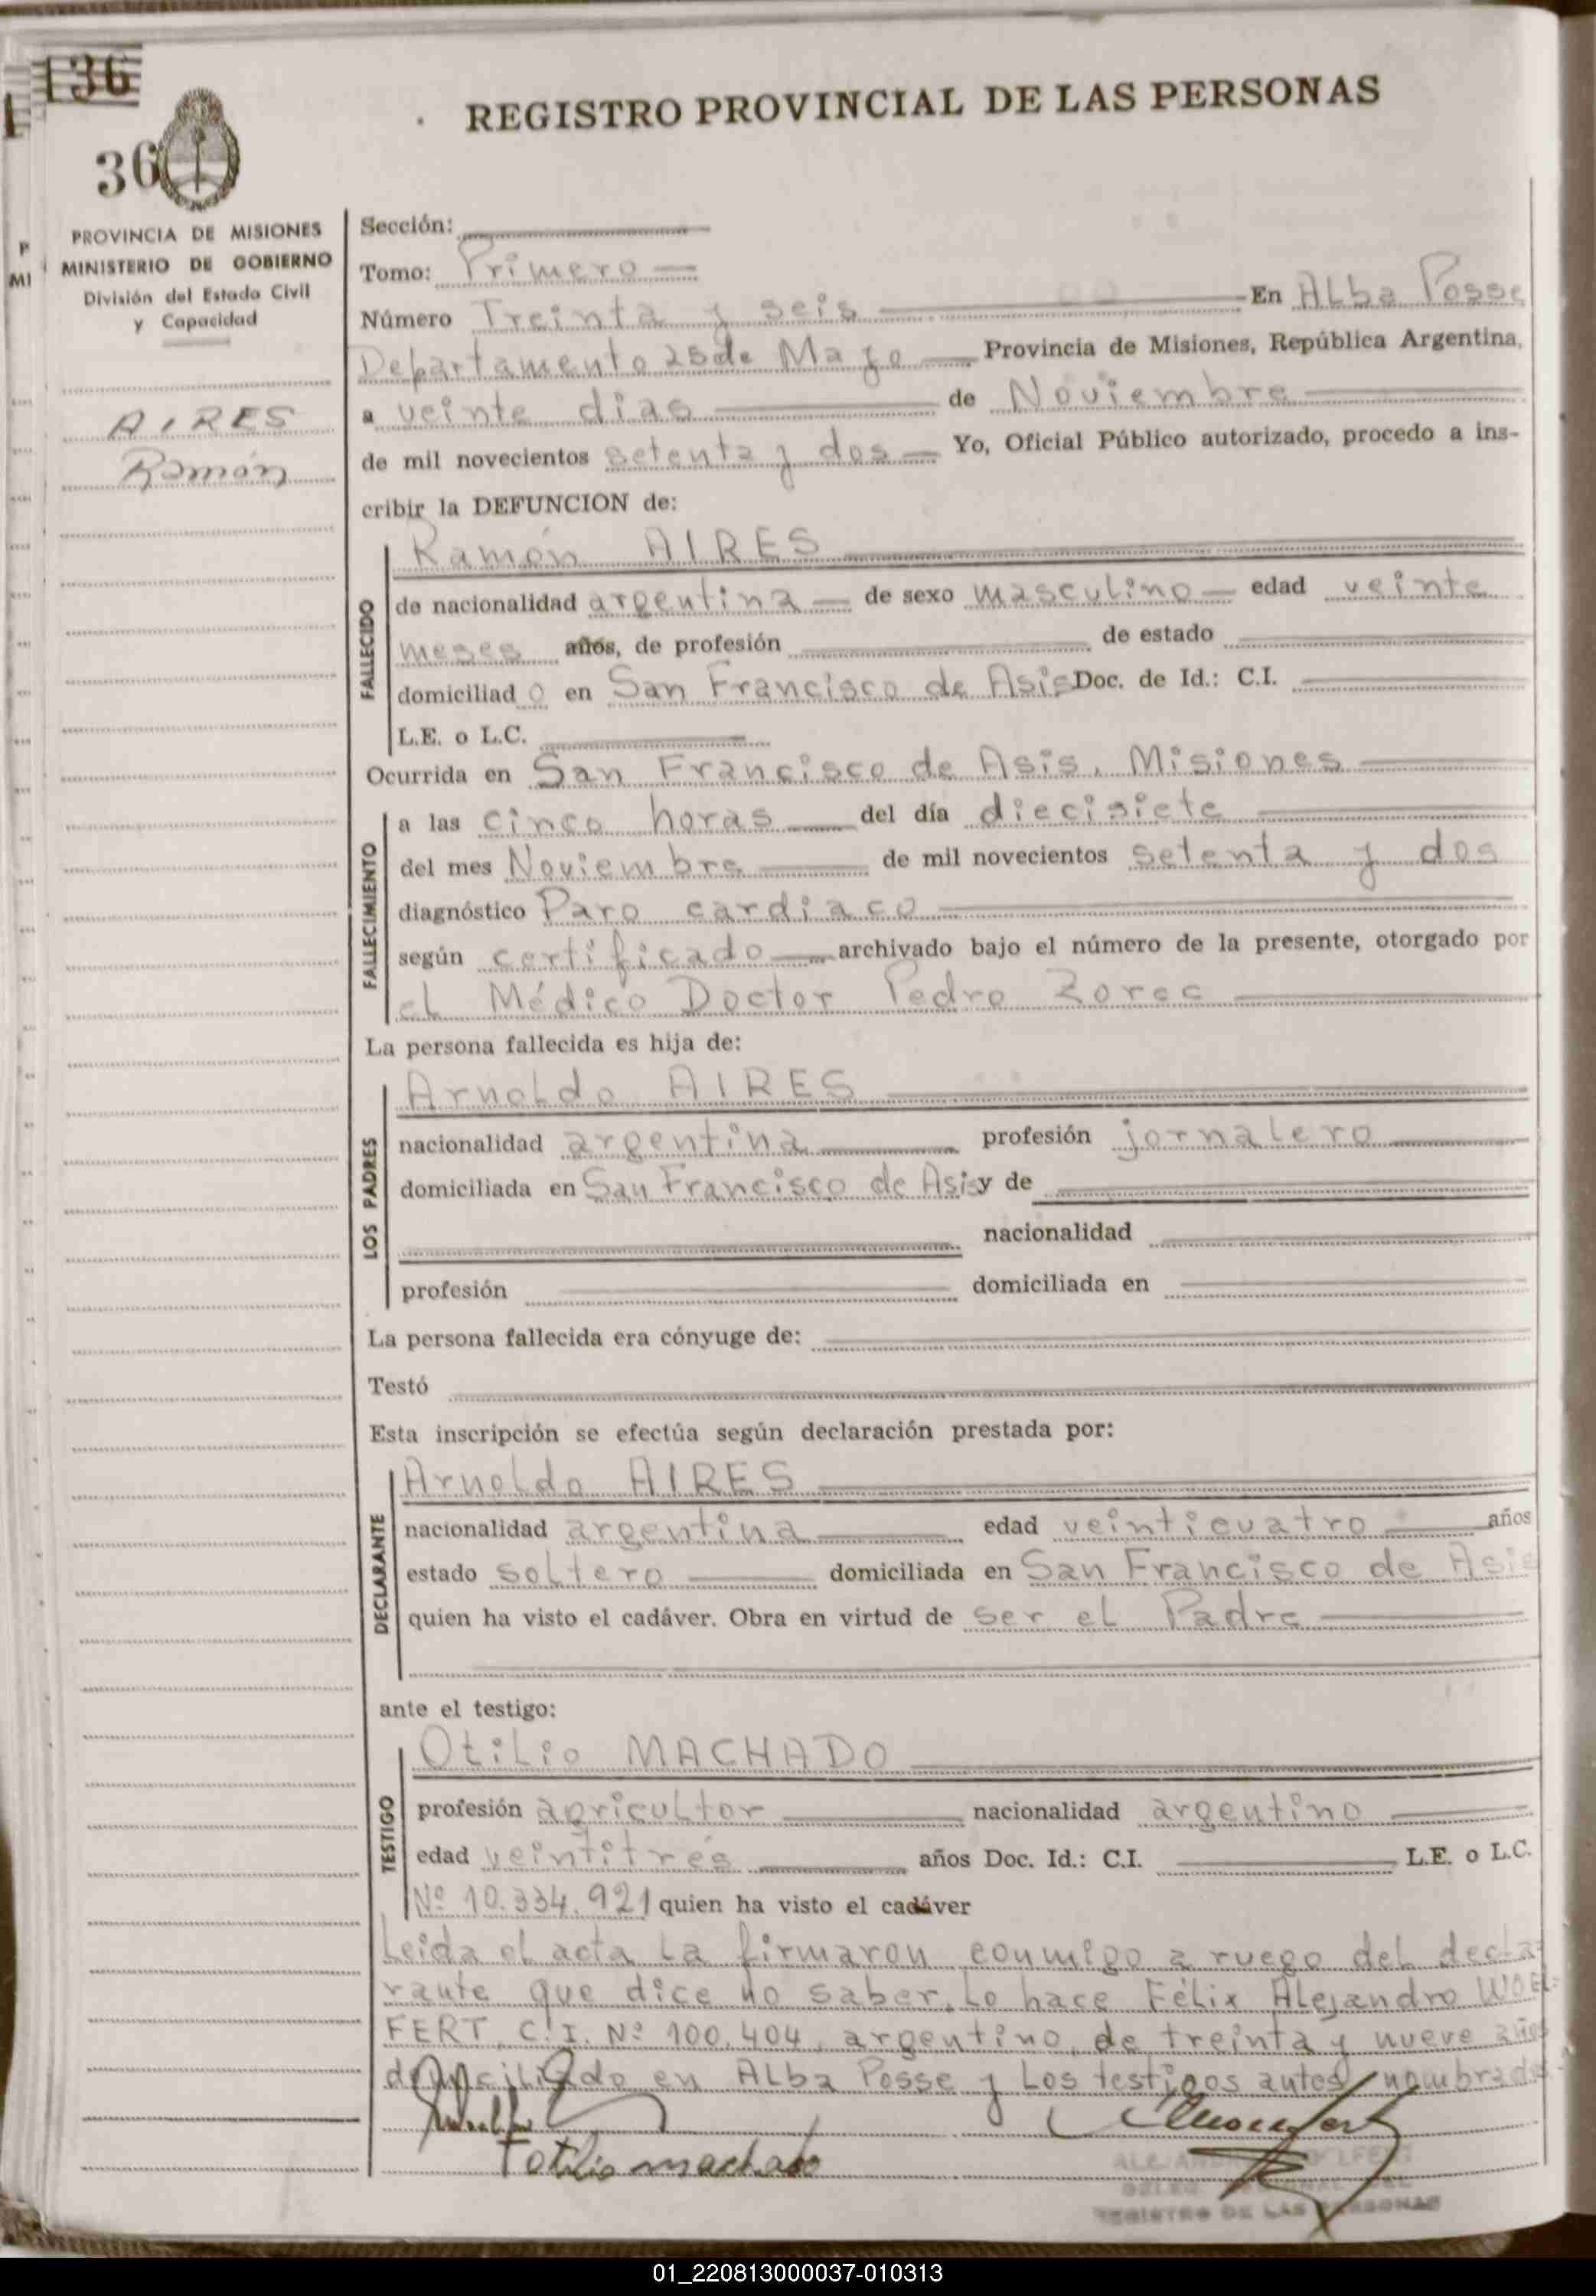 136
36
REGISTRO PROVINCIAL DE LAS PERSONAS
PROVINCIA DE MISIONES
MINISTERIO DE GOBIERNO
División del Estado Civil
y Capacidad
AIRES
Ramón
Sección:
Tomo: Primero
Número Treinta y seis En Alba Posse
Departamento 25 de Mayo Provincia de Misiones, República Argentina,
a veinte dias de Noviembre
de mil novecientos setenta y dos Yo, Oficial Público autorizado, procedo a ins-
cribir la DEFUNCION de:
FALLECIDO
Ramón AIRES
de nacionalidad argentina de sexo masculino edad veinte
meses años, de profesión de estado
domiciliado en San Francisco de Asis Doc. de Id.: C.I.
L.E. o L.C.
Ocurrida en San Francisco de Asis, Misiones
FALLECIMIENTO
a las cinco horas del día diecisiete
del mes Noviembre de mil novecientos setenta y dos
diagnóstico Paro cardiaco
según certificado archivado bajo el número de la presente, otorgado por
el Médico Doctor Pedro Zorec
La persona fallecida es hija de:
LOS PADRES
Arnoldo AIRES
nacionalidad argentina profesión jornalero
domiciliada en San Francisco de Asis y de
nacionalidad
profesión domiciliada en
La persona fallecida era cónyuge de:
Testó
Esta inscripción se efectúa según declaración prestada por:
DECLARANTE
Arnoldo AIRES
nacionalidad argentina edad veinticuatro años
estado soltero domiciliada en San Francisco de Asis
quien ha visto el cadáver. Obra en virtud de ser el Padre
ante el testigo:
TESTIGO
Otilio MACHADO
profesión agricultor nacionalidad argentino
edad veintitres años Doc. Id.: C.I. L.E. o L.C.
Nº 10.334.921 quien ha visto el cadáver
Leida el acta la firmaron conmigo a ruego del decla-
rante que dice no saber, lo hace Félix Alejandro WOEL-
FERT, C.I. Nº 100.404, argentino, de treinta y nueve años
domiciliado en Alba Posse y Los testigos antes nombrados
otilio machado
REGISTRO DE LAS PERSONAS
01_220813000037-010313